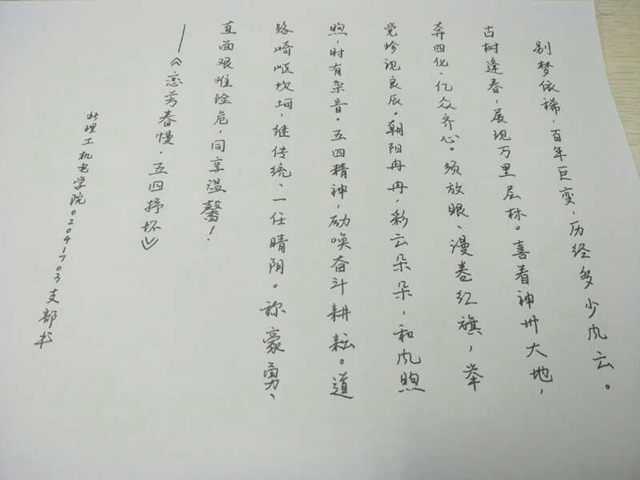 别梦依稀·百年巨变,历经多少风云。
古树逢春,展现万里层林。喜看神州大地,
奔四化、亿众齐心。须放眼、漫卷红旗,举
党珍视良辰。朝阳冉冉,彩云朵朵,和风煦
煦,时有杂音。五四精神,励唤奋斗耕耘。道
路崎岖坎坷,继传统、一任晴阴。称豪勇、
直面艰难险危,同享温馨!
——《恋芳春慢·五四抒怀》
理工机电学院02041703支部书